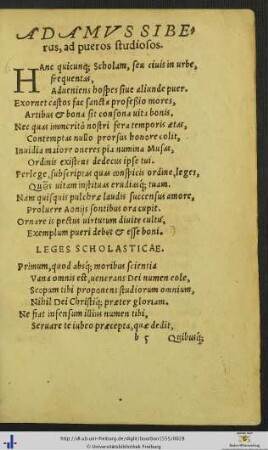 ADAMVS SIBE-
rus, ad pueros studiosos.
HAnc quicunq; Scholam, seu ciuis in urbe,
frequentas,
Adueniens hospes siue aliunde puer.
Exornet castos fac sancta professio mores,
Artibus & bona sit consona uita bonis.
Nec quas immeritò nostri fera temporis ætas,
Contemptas nullo prorsus honore colit,
Inuidia maiorr oneres pia numina Musas,
Ordinis existens dedecus ipse tui.
Perlege, subscriptas quas conspicis ordine, leges,
Quîs uitam instituas eruditasq; tuam.
Nam quisquis pulchræ laudis succensus amore,
Proluere Aonijs fontibus ora cupit.
Ornare is pectus uirtutum diuite cultu,
Exemplum pueri debet & esse boni.
LEGES SCHOLASTICAE.
Primum, quod absq; moribus scientia
Vana omnis est, uenerans Dei numen cole,
Scopum tibi proponens studiorum omnium,
Nihil Dei Christiq; præter gloriam.
Ne fiat infensum illius numen tibi,
Seruare te iubeo præcepta, quæ dedit,
b 5 Quibusq;
http://dl.ub.uni-freiburg.de/diglit/bourbon1555/0029
© Universitätsbibliothek Freiburg